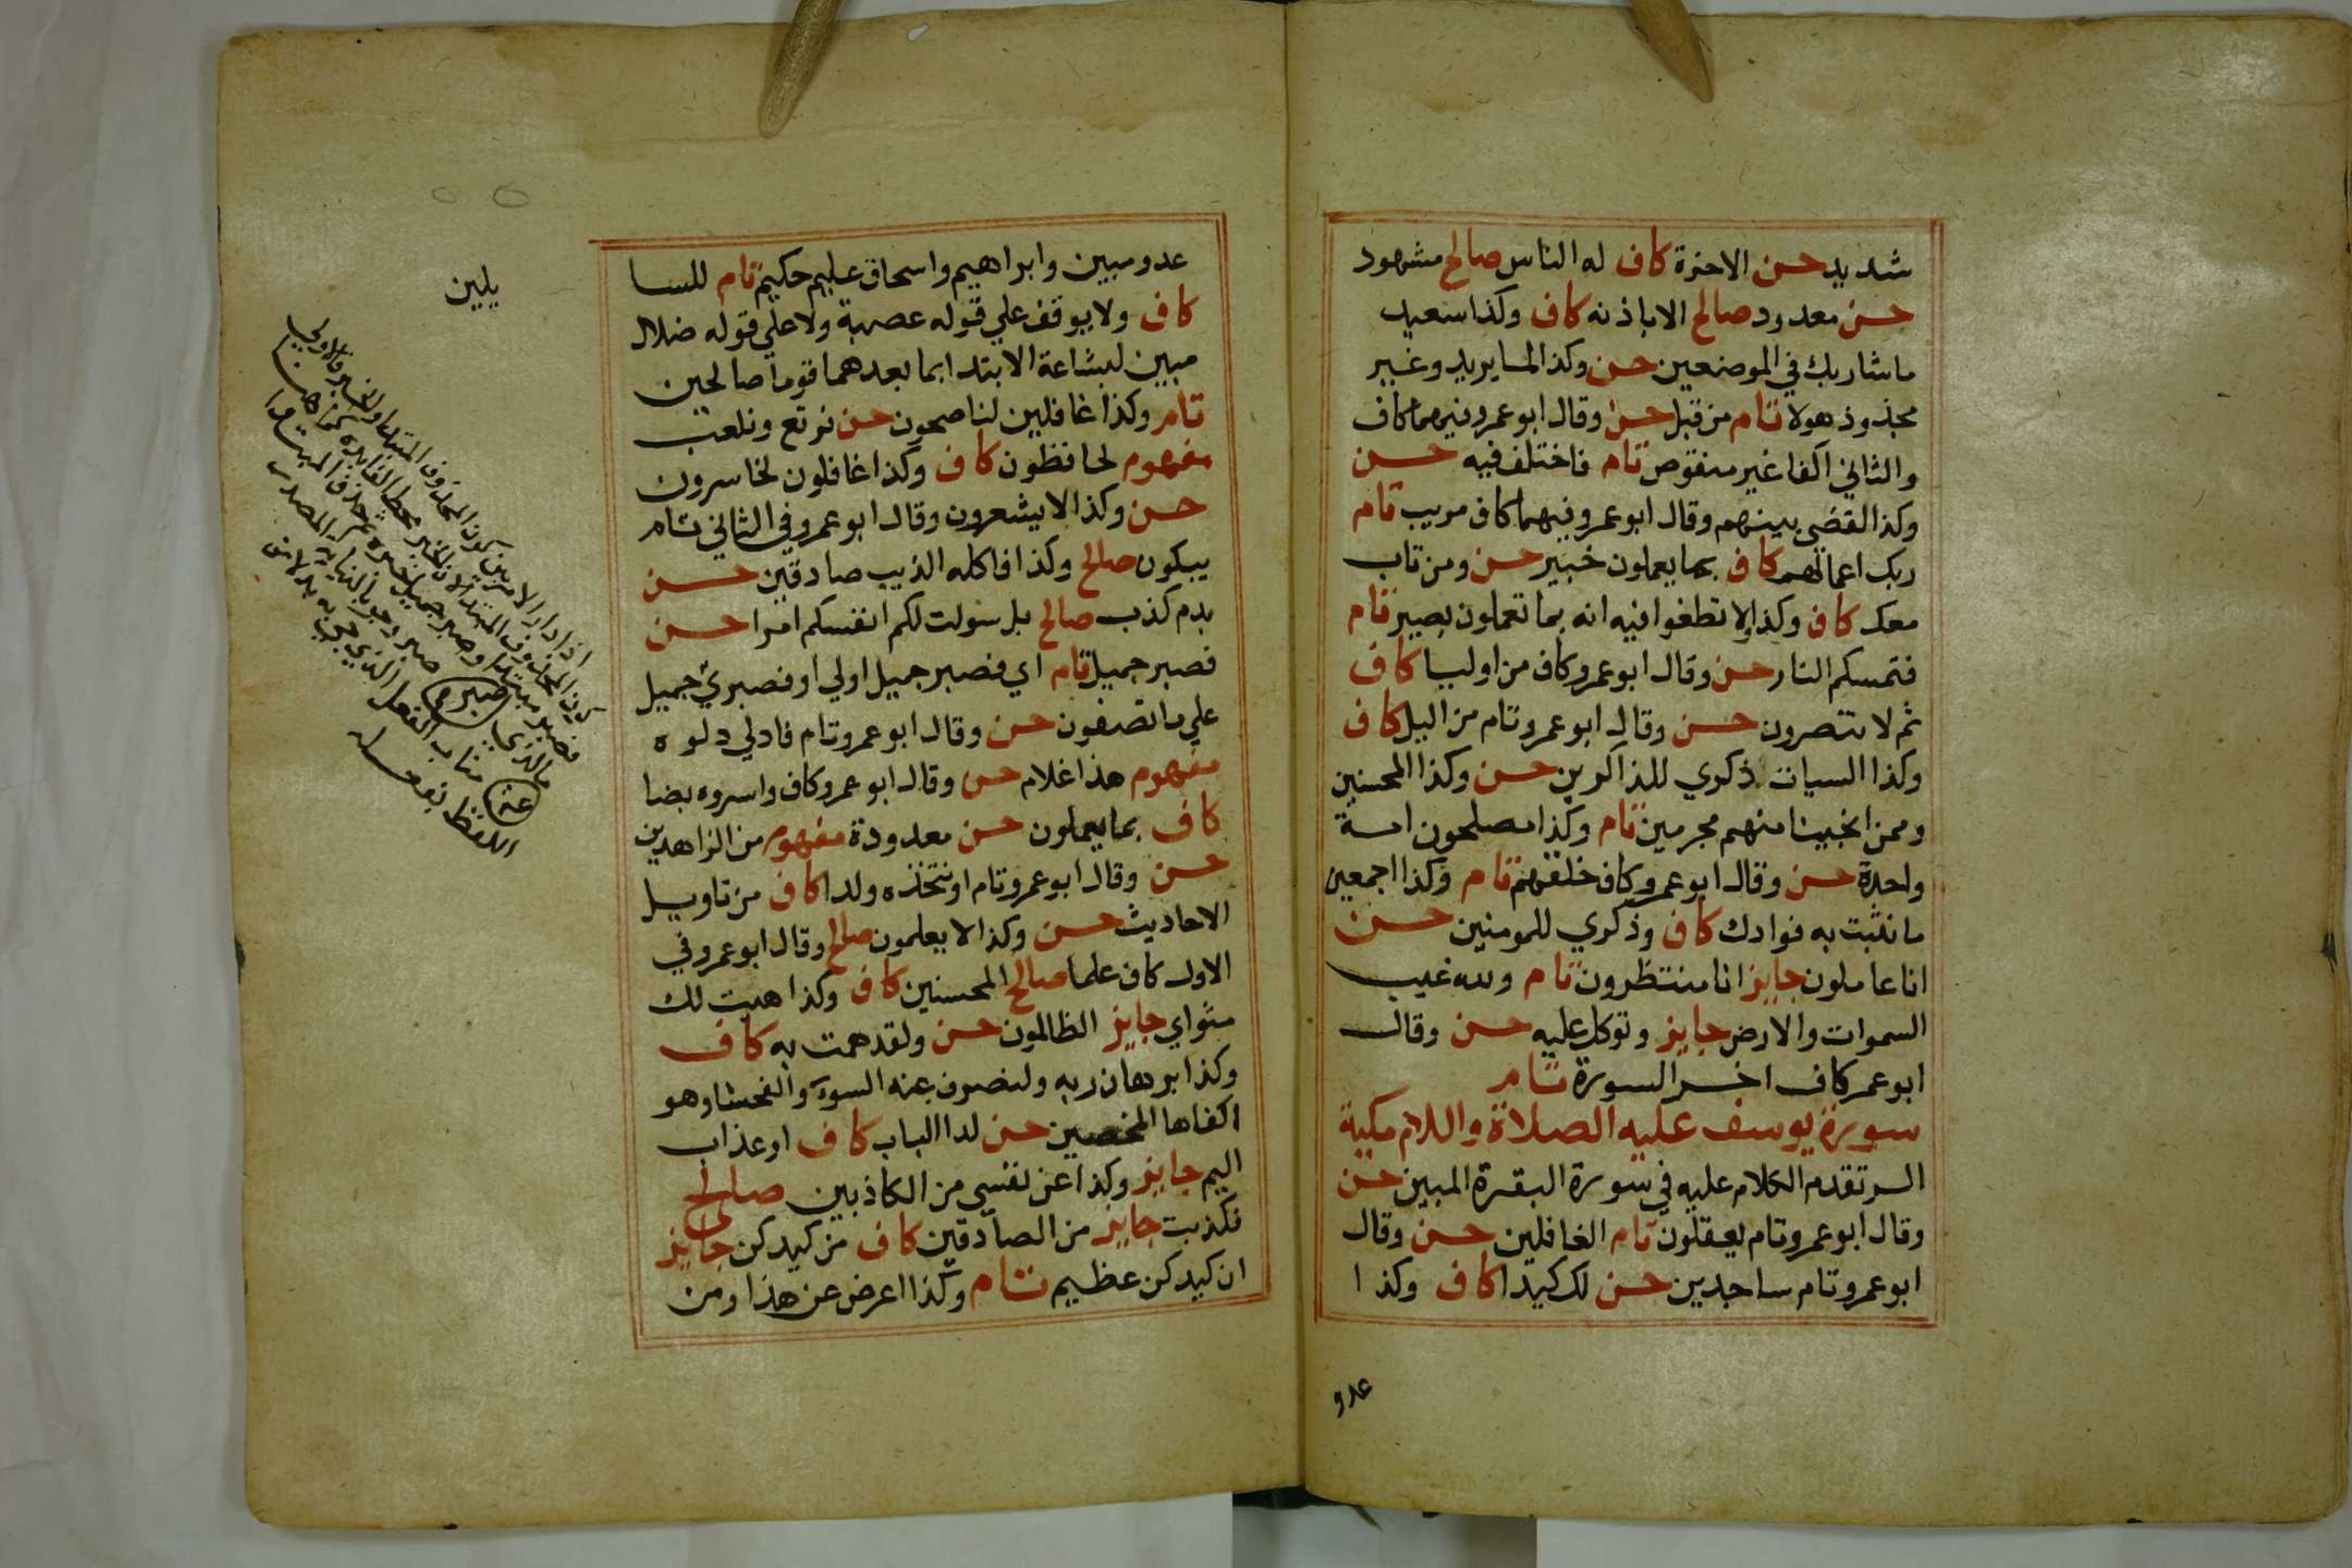 شديد حسن الاخرة كاف له الناس صالح مشهود
حسن معدود صالح الا باذنه كاف وكذا سعيد
ما شا ربك في الموضعين حسن وكذا لما يريد وغير
مجذوذ هولا تام من قبل حسن وقال ابو عمرو فيهما كاف
والثاني اكفا غير منقوص تام فاختلف فيه حسن
وكذا لقضى بينهم وقال ابو عمرو فيهما كاف مريب تام
ربك اعمالهم كاف بما يعملون خبير حسن ومن تاب
معك كاف وكذا ولا تطغوا فيه انه بما تعملون بصير تام
فتمسكم النار حسن وقال ابو عمرو كاف من اوليا كاف
ثم لا تنصرون حسن وقال ابو عمرو تام من اليل كاف
وكذا السيات ذكري للذاكرين حسن وكذا المحسنين
وممن انجينا منهم مجرمين تام وكذا مصلحون امة
واحدة حسن وقال ابو عمرو كاف خلقهم تام وكذا اجمعين
ما نثبت به فوادك كاف وذكري للمومنين حسن
انا عاملون جايز انا منتظرون تام ولله غيب
السموات والارض جايز وتوكل عليه حسن وقال
ابو عمر كاف اخر السورة تام
سورة يوسف عليه الصلاة والسلام مكية
الر تقدم الكلام عليه في سورة البقرة المبين حسن
وقال ابو عمرو تام يعقلون تام الغافلين حسن وقال
ابو عمرو تام ساجدين حسن لك كيدا كاف وكذا
عدو
عدو مبين وابراهيم واسحاق عليم حكيم تام للسا
يلين
كاف ولا يوقف علي قوله عصبة ولا علي قوله ضلال
مبين لبشاعة الابتدا بما بعدهما قوما صالحين
تام وكذا غافلين لناصحون حسن نرتع ونلعب
مفهوم لحافظون كاف وكذا غافلون لخاسرون
حسن وكذا لا يشعرون وقال ابو عمرو في الثاني تام
يبكون صالح وكذا فاكله الذيب صادقين حسن
بدم كذب صالح بل سولت لكم انفسكم امرا حسن
فصبر جميل تام اي فصبر جميل اولي او فصبري جميل
علي ما تصفون حسن وقال ابو عمرو تام فادلي دلوه
مفهوم هذا غلام حسن وقال ابو عمرو كاف واسروه بضا
عة
كاف بما يعملون حسن معدودة مفهوم من الزاهدين
حسن وقال ابو عمرو تام او نتخذه ولدا كاف من تاويل
الاحاديث حسن وكذا لا يعلمون صالح وقال ابو عمرو في
الاول كاف علما صالح المحسنين كاف وكذا هيت لك
مثواي جايز الظالمون حسن ولقد همت به كاف
وكذا برهان ربه ولنصرف عنه السوء والفحشا وهو
اكفاها المخلصين حسن لدا الباب كاف او عذاب
اليم جايز وكذا عن نفسي من الكاذبين صالح
فكذبت جايز من الصادقين كاف من كيدكن جايز
ان كيدكن عظيم تام وكذا اعرض عن هذا ومن
اذا دار الامر بين كون المحذوف المبتدا والخبر فالاولي
كون المحذوف المبتدا لان الخبر محط الفايدة